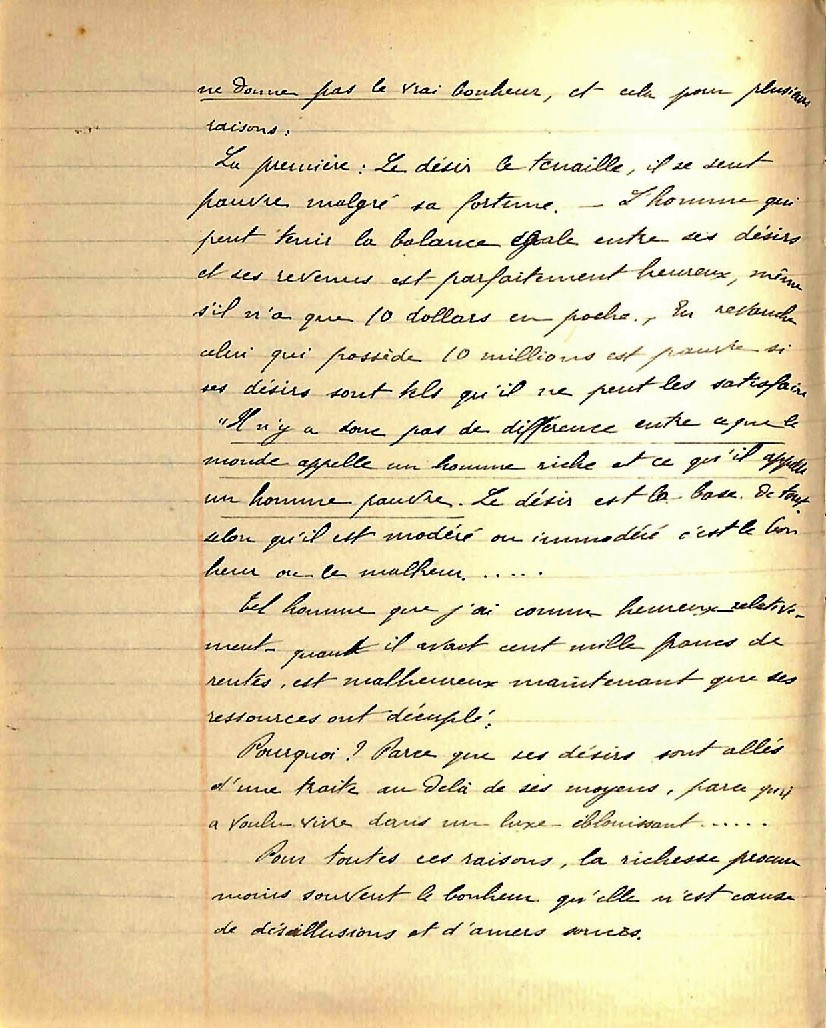 ne donne pas le vrai bonheur, et cela pour plusieurs
raisons :
La première : Le désir le tenaille, il se sent
pauvre malgré sa fortune. — L'homme qui
peut tenir la balance égale entre ses désirs
et ses revenus est parfaitement heureux, même
s'il n'a que 10 dollars en poche., En revanche
celui qui possède 10 millions est pauvre si
ses désirs sont tels qu'il ne peut les satisfaire
"Il n'y a donc pas de différence entre ce que le
monde appelle un homme riche et ce qu'il appelle
un homme pauvre. Le désir est la base de tout
selon qu'il est modéré ou immodéré c'est le bon
heur ou le malheur.....
Tel homme que j'ai connu heureux relative-
ment quand il avait cent mille francs de
rentes, est malheureux maintenant que ses
ressources ont décuplé.
Pourquoi ? Parce que ses désirs sont allés
d'une traite au delà de ses moyens, parce qu'il
a voulu vivre dans un luxe éblouissant......
Pour toutes ces raisons, la richesse procure
moins souvent le bonheur qu'elle n'est cause
de désillusions et d'amers soucis.